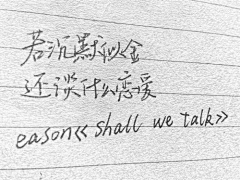 若沉默似金
还谈什么恋爱
eason《shall we talk》